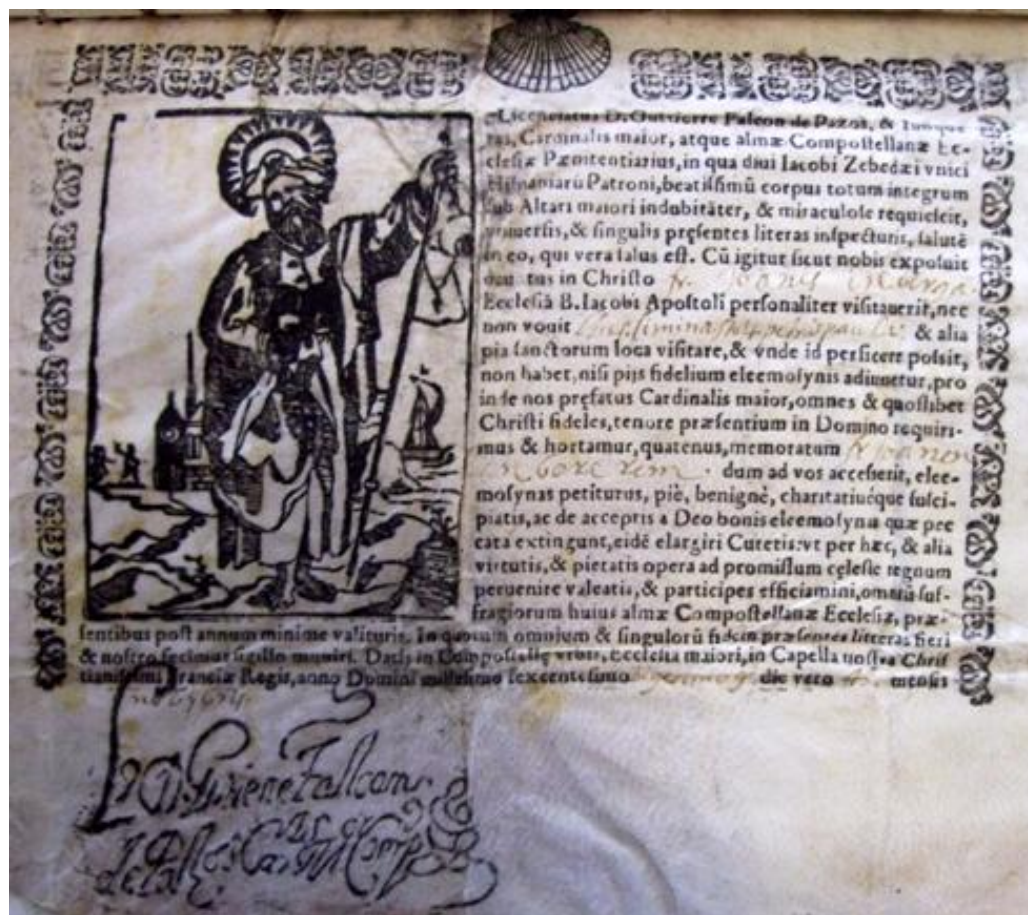 Licenciatus D. Guttierre Falcon de Pazos, &
ras, Cardinalis maior, atque almæ Compostellanæ Ec-
clesiæ Pænitentiarius, in qua diui Iacobi Zebedæi vnici
Hispaniarũ Patroni, beatissimũ corpus totum integrum
sub Altari maiori indubitãter, & miraculose requiescit,
vniuersis, & singulis pręsentes literas inspecturis, salutẽ
in eo, qui vera salus est. Cũ igitur sicut nobis exposuit
in Christo fr.
Ecclesiã B. Iacobi Apostoli personaliter visitauerit, nec
non vouit & alia
pia sanctorum loca visitare, & vnde id perficere possit,
non habet, nisi pijs fidelium eleemosynis adiuuetur, pro
inde nos pręfatus Cardinalis maior, omnes & quoslibet
Christi fideles, tenore præsentium in Domino requiri-
mus & hortamur, quatenus, memoratum fr
dum ad vos accesserit, elee-
mosynas petiturus, piè, benignè, charitatiuéque susci-
piatis, ac de acceptis a Deo bonis eleemosynas quæ pec
cata extingunt, eidẽ elargiri Curetis: vt per hæc, & alia
virtutis, & pietatis opera ad promissum cęleste regnum
peruenire valeatis, & participes efficiamini, omniũ suf-
fragiorum huius almæ Compostellanæ Ecclesiæ, præ-
sentibus post annum minime valituris. In quorum omnium & singulorũ fidem præsentes litteras fieri
& nostro fecimus sigillo muniri. Datis in Compostellę vrbis, Ecclesia maiori, in Capella nostra Chris
tianissimi Franciæ Regis, anno Domini millesimo sexcentesimo die vero mensis
Falcon